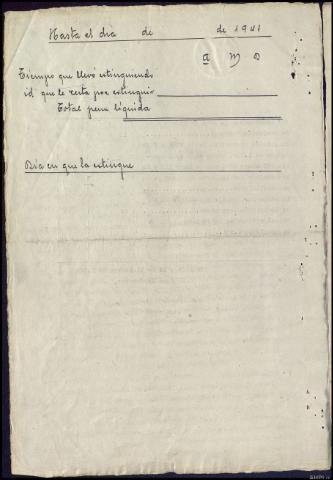 Hasta el día de de 1941
a m D
Tiempo que llevó extinguiendo
id que le resta por extinguir
Total pena líquida
Día en que la extingue